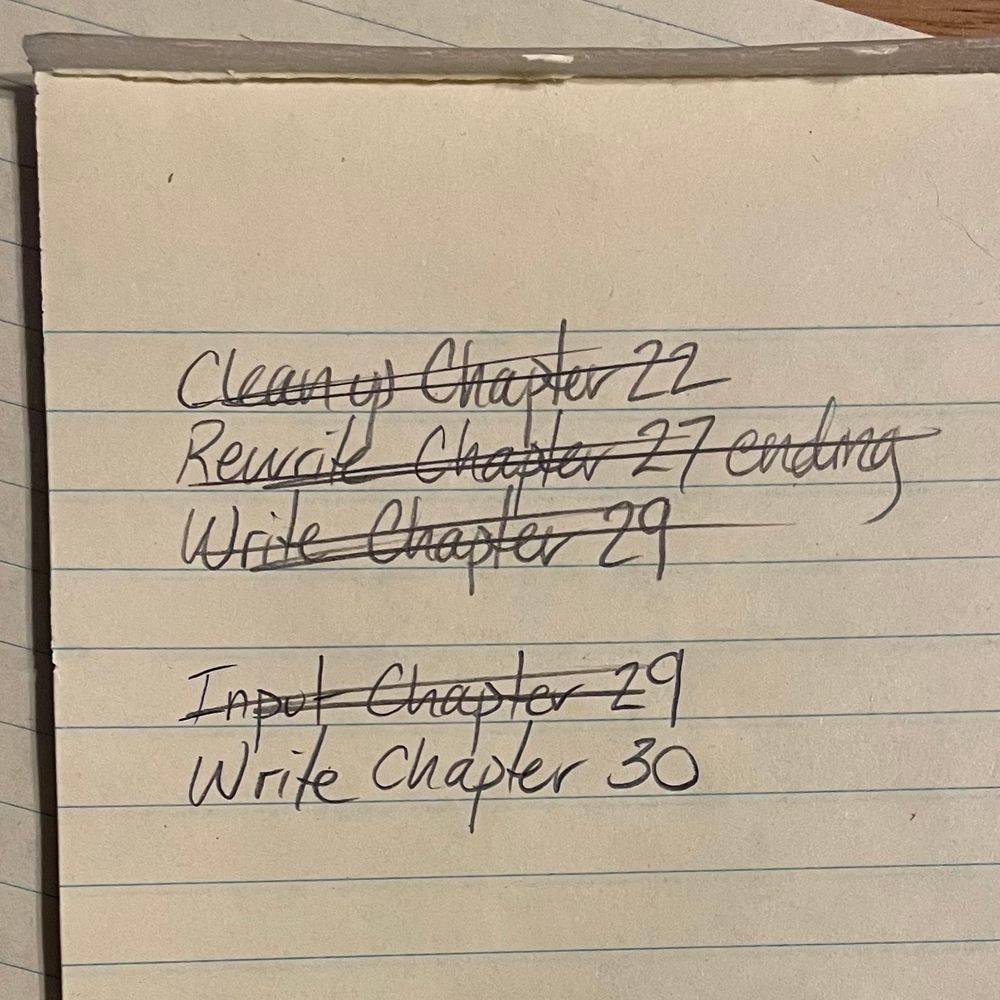 Clean up Chapter 22
Rewrite Chapter 27 ending
Write Chapter 29
Input Chapter 29
Write Chapter 30